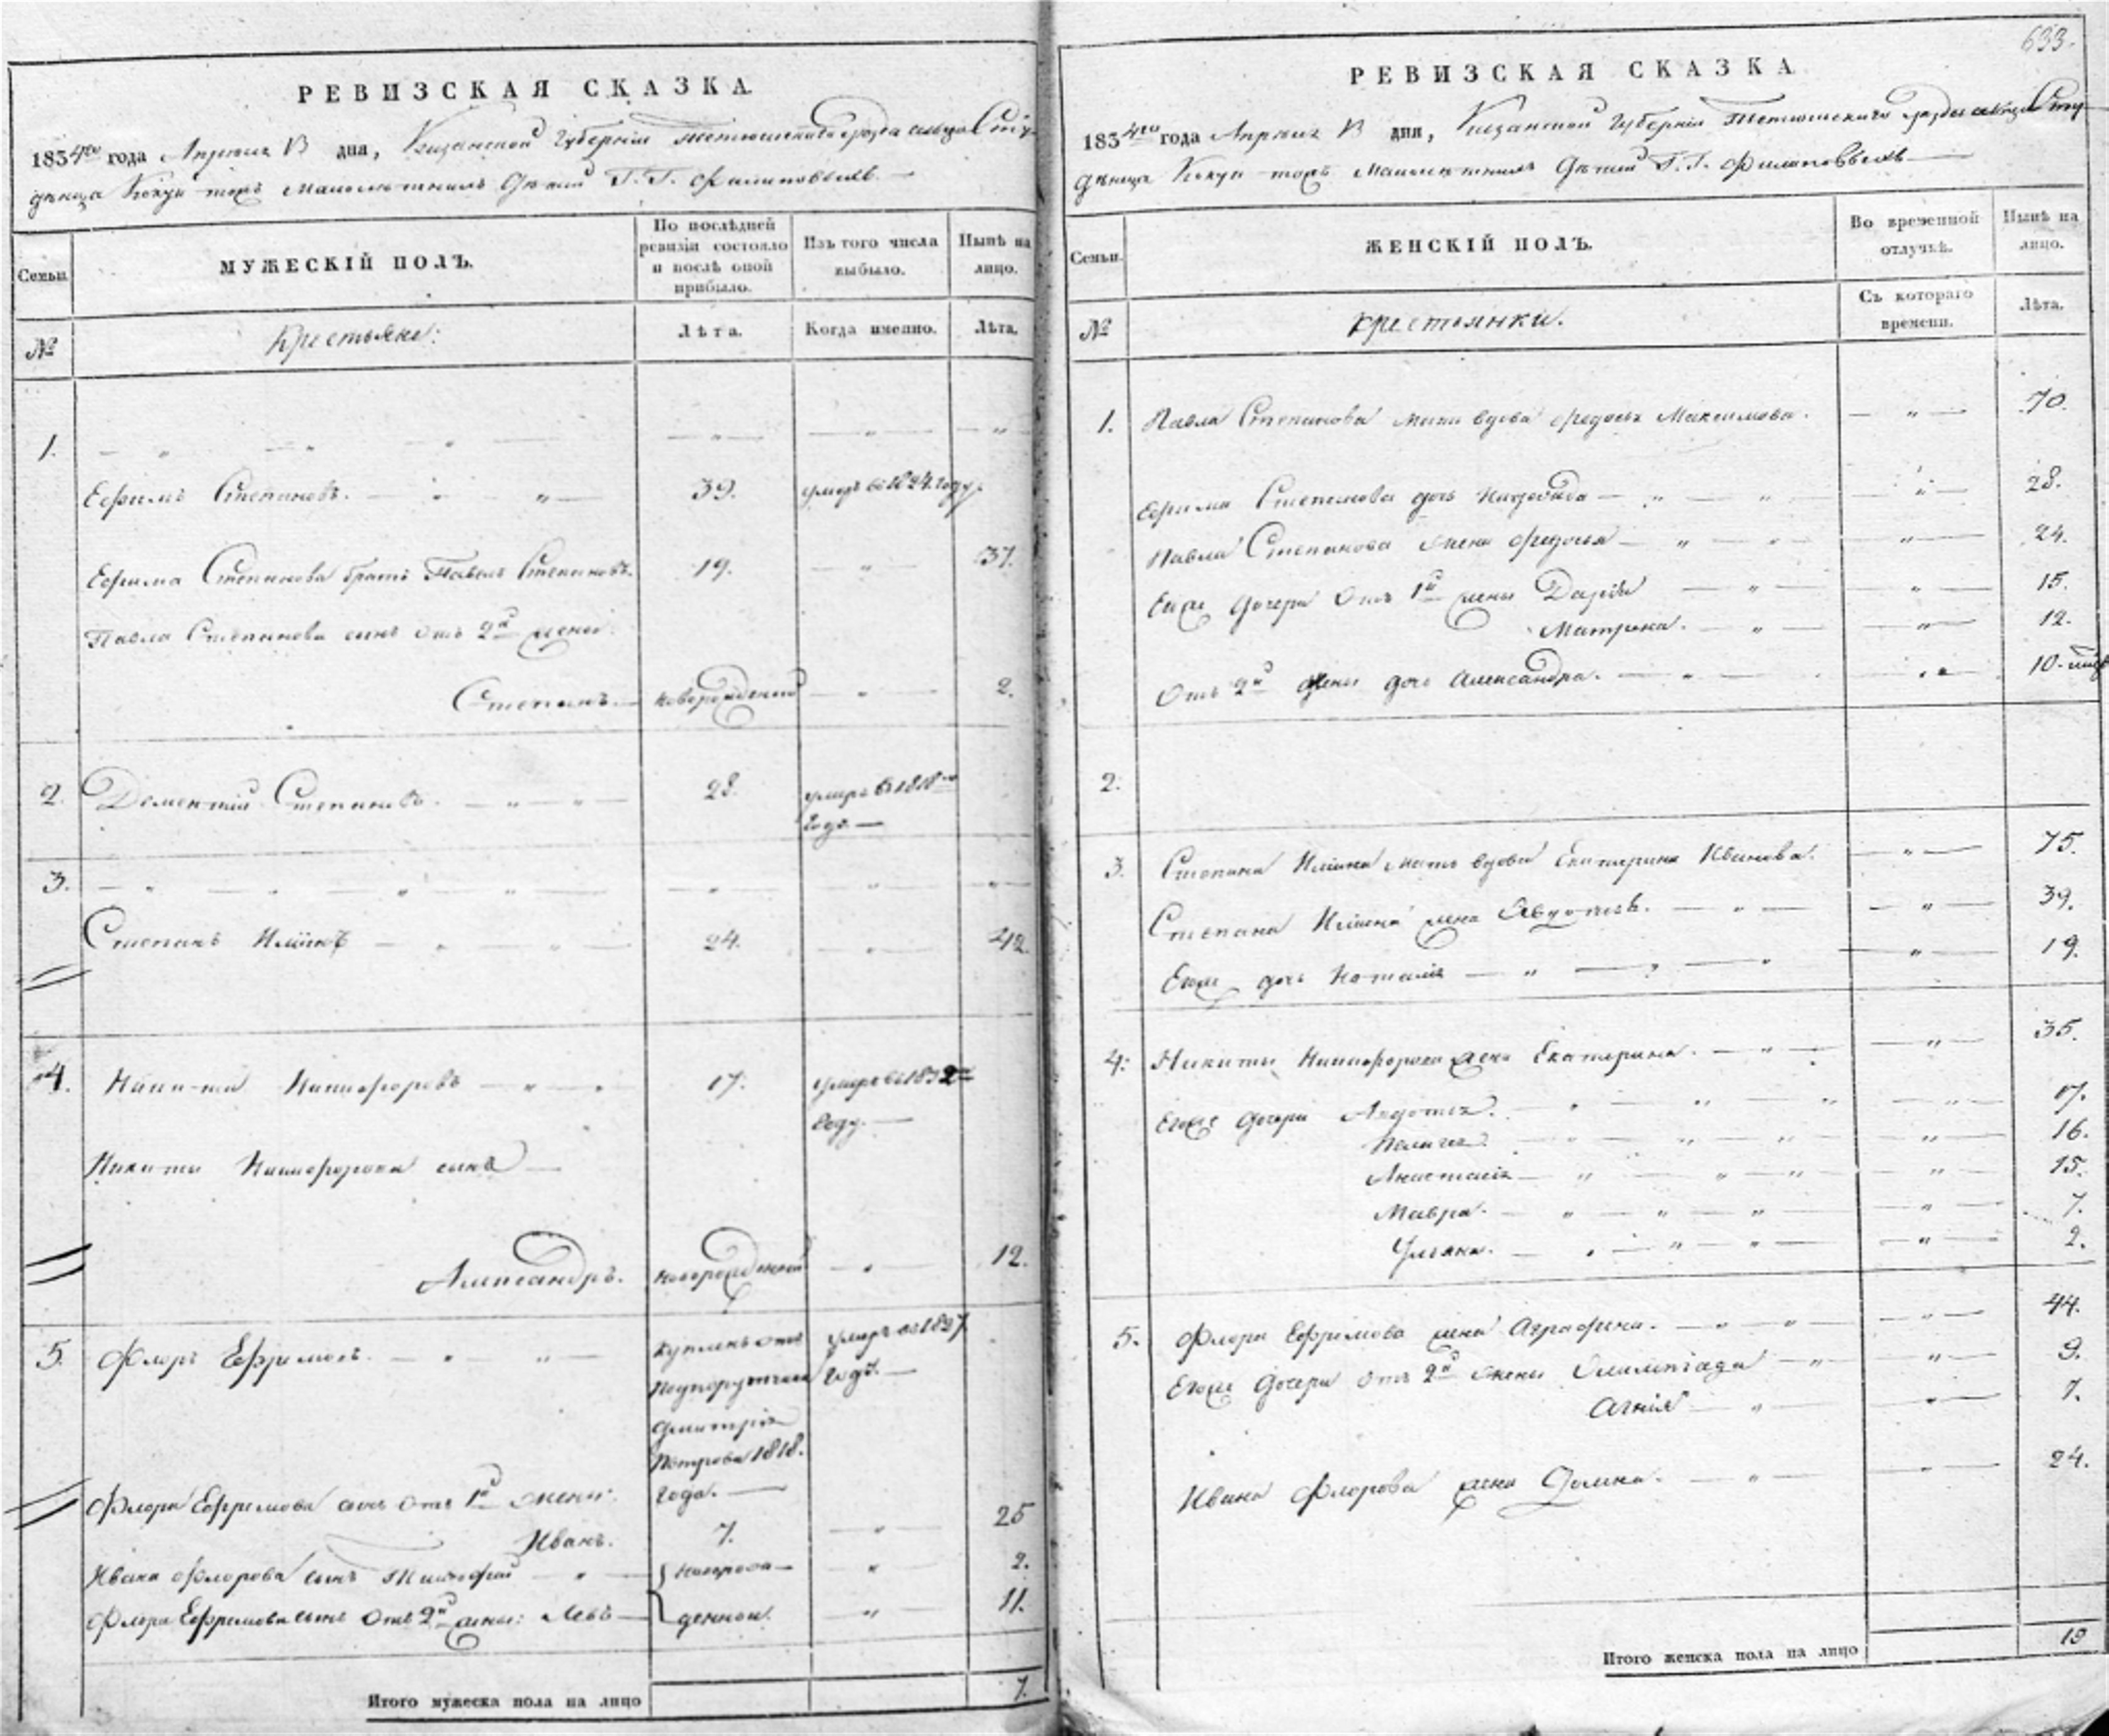 РЕВИЗСКАЯ СКАЗКА
1834го года Апреля дня, Казанской Губернии Тетюшского уезда сельца Сту-
денца Кокуй тожъ малолетнихъ Детей Г. Г. Филиповыхъ
Семьи.
МУЖЕСКІЙ ПОЛЪ.
По послѣдней ревизіи состояло и послѣ оной прибыло.
Изъ того числа выбыло.
Нынѣ на лицо.
№
Крестьяне:
Лѣта.
Когда именно.
Лѣта.
1.
Ефимъ Степановъ. 39. умеръ въ 1824 году.
Ефима Степанова братъ Павелъ Степановъ. 19. 37.
Павла Степанова сынъ отъ 2й жены
Степанъ. новорожденный 2.
2. Дементий Степановъ. 28. умеръ въ 1818м
годе.
3.
Степанъ Ильинъ 24. 42.
4. Никита Никифоровъ 17. умеръ въ 1832м
году.
Никиты Никифорова сынъ
Александръ. новорожденный 12.
5. Флоръ Ефремовъ. купленъ отъ умеръ въ 1827
Подпорутчика годе.
Дмитрия
Петрова 1818.
Флора Ефремова сынъ отъ 1й жены года.
Иванъ. 7. 25
Ивана Флорова сынъ Тимофей новорож- 2.
Флора Ефремова сынъ отъ 2й жены: Левъ денной. 11.
Итого мужеска пола на лицо 7.
633.
РЕВИЗСКАЯ СКАЗКА
1834го года Апреля дня, Казанской Губернии Тетюшского уезда сельца Сту-
денца Кокуй тожъ Малолетнихъ Детей Г. Г. Филиповыхъ
Семьи.
ЖЕНСКІЙ ПОЛЪ.
Во временной отлучкѣ.
Нынѣ на лицо.
№
Крестьянки.
Съ котораго времени.
Лѣта.
1. Павла Степанова мать вдова Федосья Максимова. 70.
Ефима Степанова дочь 28.
Павла Степанова жена Федосья 24.
Ево же дочери отъ 1й жены Дарья 15.
Матрена. 12.
Отъ 2й жены дочь Александра. 10.
2.
3. Степана Ильина мать вдова Екатерина Иванова. 75.
Степана Ильина жена Авдотья. 39.
Евоже дочь Наталия 19.
4. Никиты Никифорова жена Екатерина. 35.
Евоже дочери Авдотья. 17.
Пелагея. 16.
Анастасия 15.
Мавра. 7.
Ульяна. 2.
5. Флора Ефремова жена Аграфена. 44.
Евоже дочери отъ 2й жены Олимпиада 9.
Агния 7.
Ивана Флорова жена Домна. 24.
Итого женска пола на лицо 19